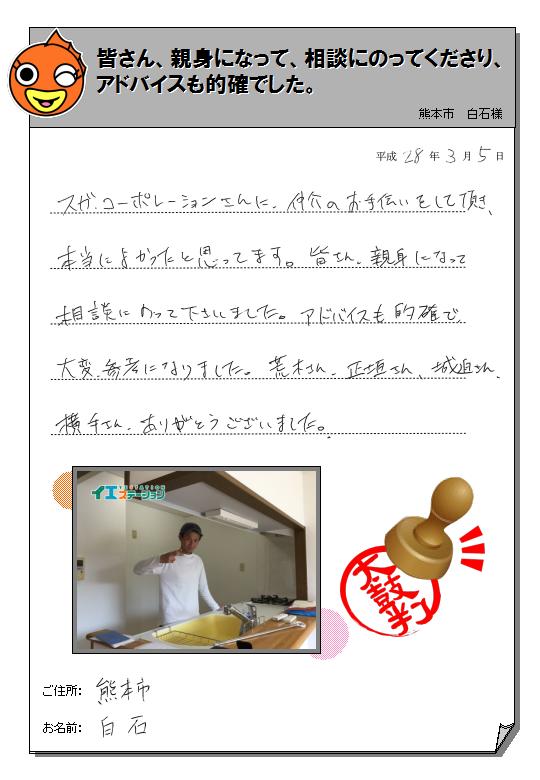 皆さん、親身になって、相談にのってくださり、
アドバイスも的確でした。
熊本市 白石様
平成 28 年 3 月 5 日
スガコーポレーションさんに、仲介のお手伝いをして頂き、
本当によかったと思ってます。皆さん、親身になって
相談にのって下さいました。アドバイスも的確で、
大変、参考になりました。荒木さん、正垣さん、城迫さん、
横手さん、ありがとうございました。
イエステーション
太鼓判
ご住所: 熊本市
お名前: 白石